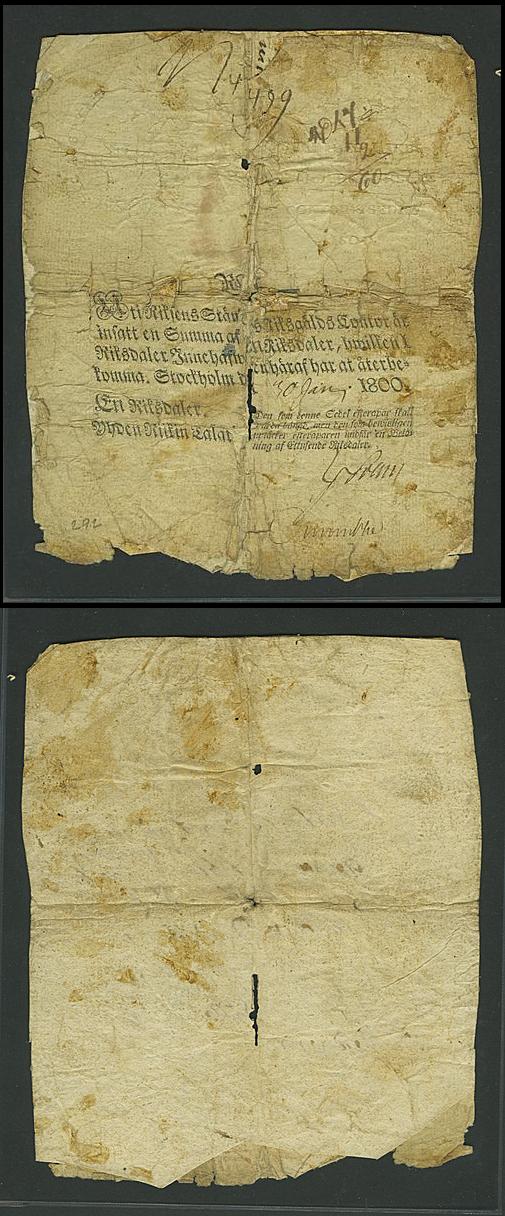 N 74499
N 17
11
9
60
Uti Riksens Stän s Riksgälds Contor är
insatt en Summa af En Riksdaler, hwilken
Riksdaler Innehafw en häraf har at återbe-
komma. Stockholm d 30 Junj. 1800.
En Riksdaler.
Yhden Riikin Talar
Den som denne Sedel efterapar skall
warda hängd, men den som bewisligen
uptäcker efteraparen undfår en Belö-
ning af Ettusende Riksdaler.
292